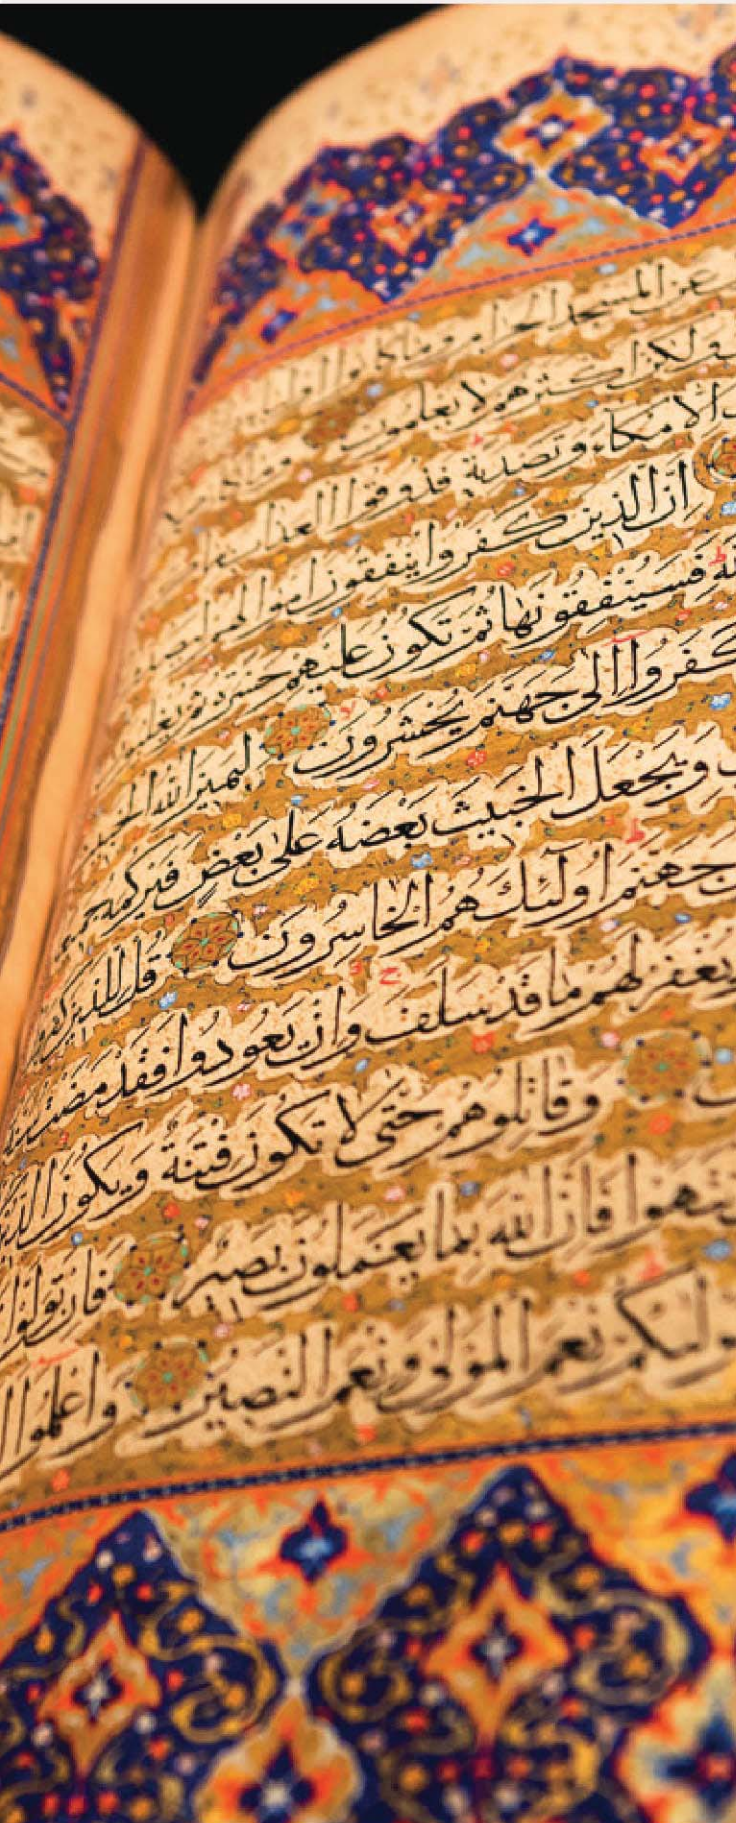 عن المسجد الحرام وما كانوا اوليا
ولكن اكثرهم لا يعلمون وما كان
الا مكاء وتصدية فذوقوا العذاب
ان الذين كفروا ينفقون اموالهم
فسينفقونها ثم تكون عليهم حسرة ثم يغلبون
كفروا الى جهنم يحشرون ليميز الله الخبيث
ويجعل الخبيث بعضه على بعض فيركمه جميعا
جهنم اولئك هم الخاسرون قل للذين كفروا
يغفر لهم ما قد سلف وان يعودوا فقد مضت
وقاتلوهم حتى لا تكون فتنة ويكون الدين
انتهوا فان الله بما يعملون بصير فان تولوا
مولىكم نعم المولى ونعم النصير واعلموا